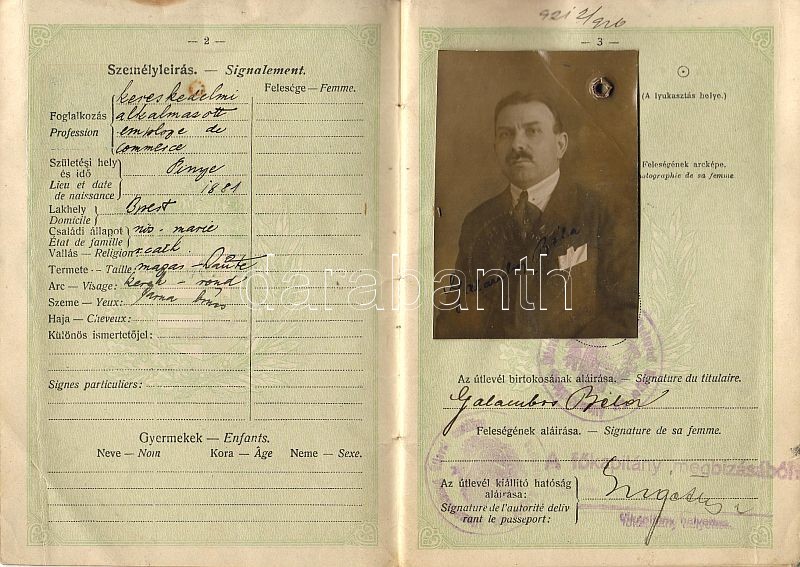 — 2 —
Személyleirás. — Signalement.
Felesége — Femme.
Foglalkozás
Profession
kereskedelmi
alkalmazott
employe de
commerce
Születési hely
és idő
Lieu et date
de naissance
Penye
1881
Lakhely
Domicile
Bpest
Családi állapot
État de famille
nős - marie
Vallás — Religion
r. cath
Termete — Taille
magas - haute
Arc — Visage:
kerek - rond
Szeme — Yeux:
barna brun
Haja — Cheveux:
Különös ismertetőjel:
Signes particuliers:
Gyermekek — Enfants.
Neve — Nom Kora — Âge Neme — Sexe.
921 2/926
— 3 —
(A lyukasztás helye.)
Feleségének arcképe.
otographie de sa femme
Béla
darabanth
Az útlevél birtokosának aláirása. — Signature du titulaire.
Galambos Béla
Feleségének aláirása. — Signature de sa femme.
A főkapitány megbizásából:
Az útlevél kiállító hatóság
aláirása:
Signature de l'autorité deliv
rant le passeport: